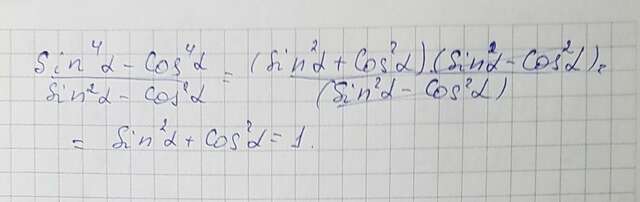 (Sin⁴α − Cos⁴α) / (Sin²α − Cos²α) = (Sin²α + Cos²α)·(Sin²α − Cos²α) / (Sin²α − Cos²α) =
= Sin²α + Cos²α = 1.